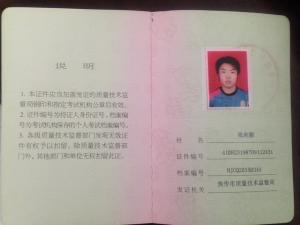 说 明
1. 本证件应当加盖发证的质量技术监
督局钢印和指定考试机构公章后有效。
2. 证件编号为持证人身份证号,档案编
号为考试机构保存的个人考试档案编号。
3. 各级质量技术监督部门发现无效证
件有权予以扣留,除质量技术监督部
门外,其他部门和单位无权扣留此证。
姓 名
证件编号
档案编号
发证机关 焦作市质量技术监督局